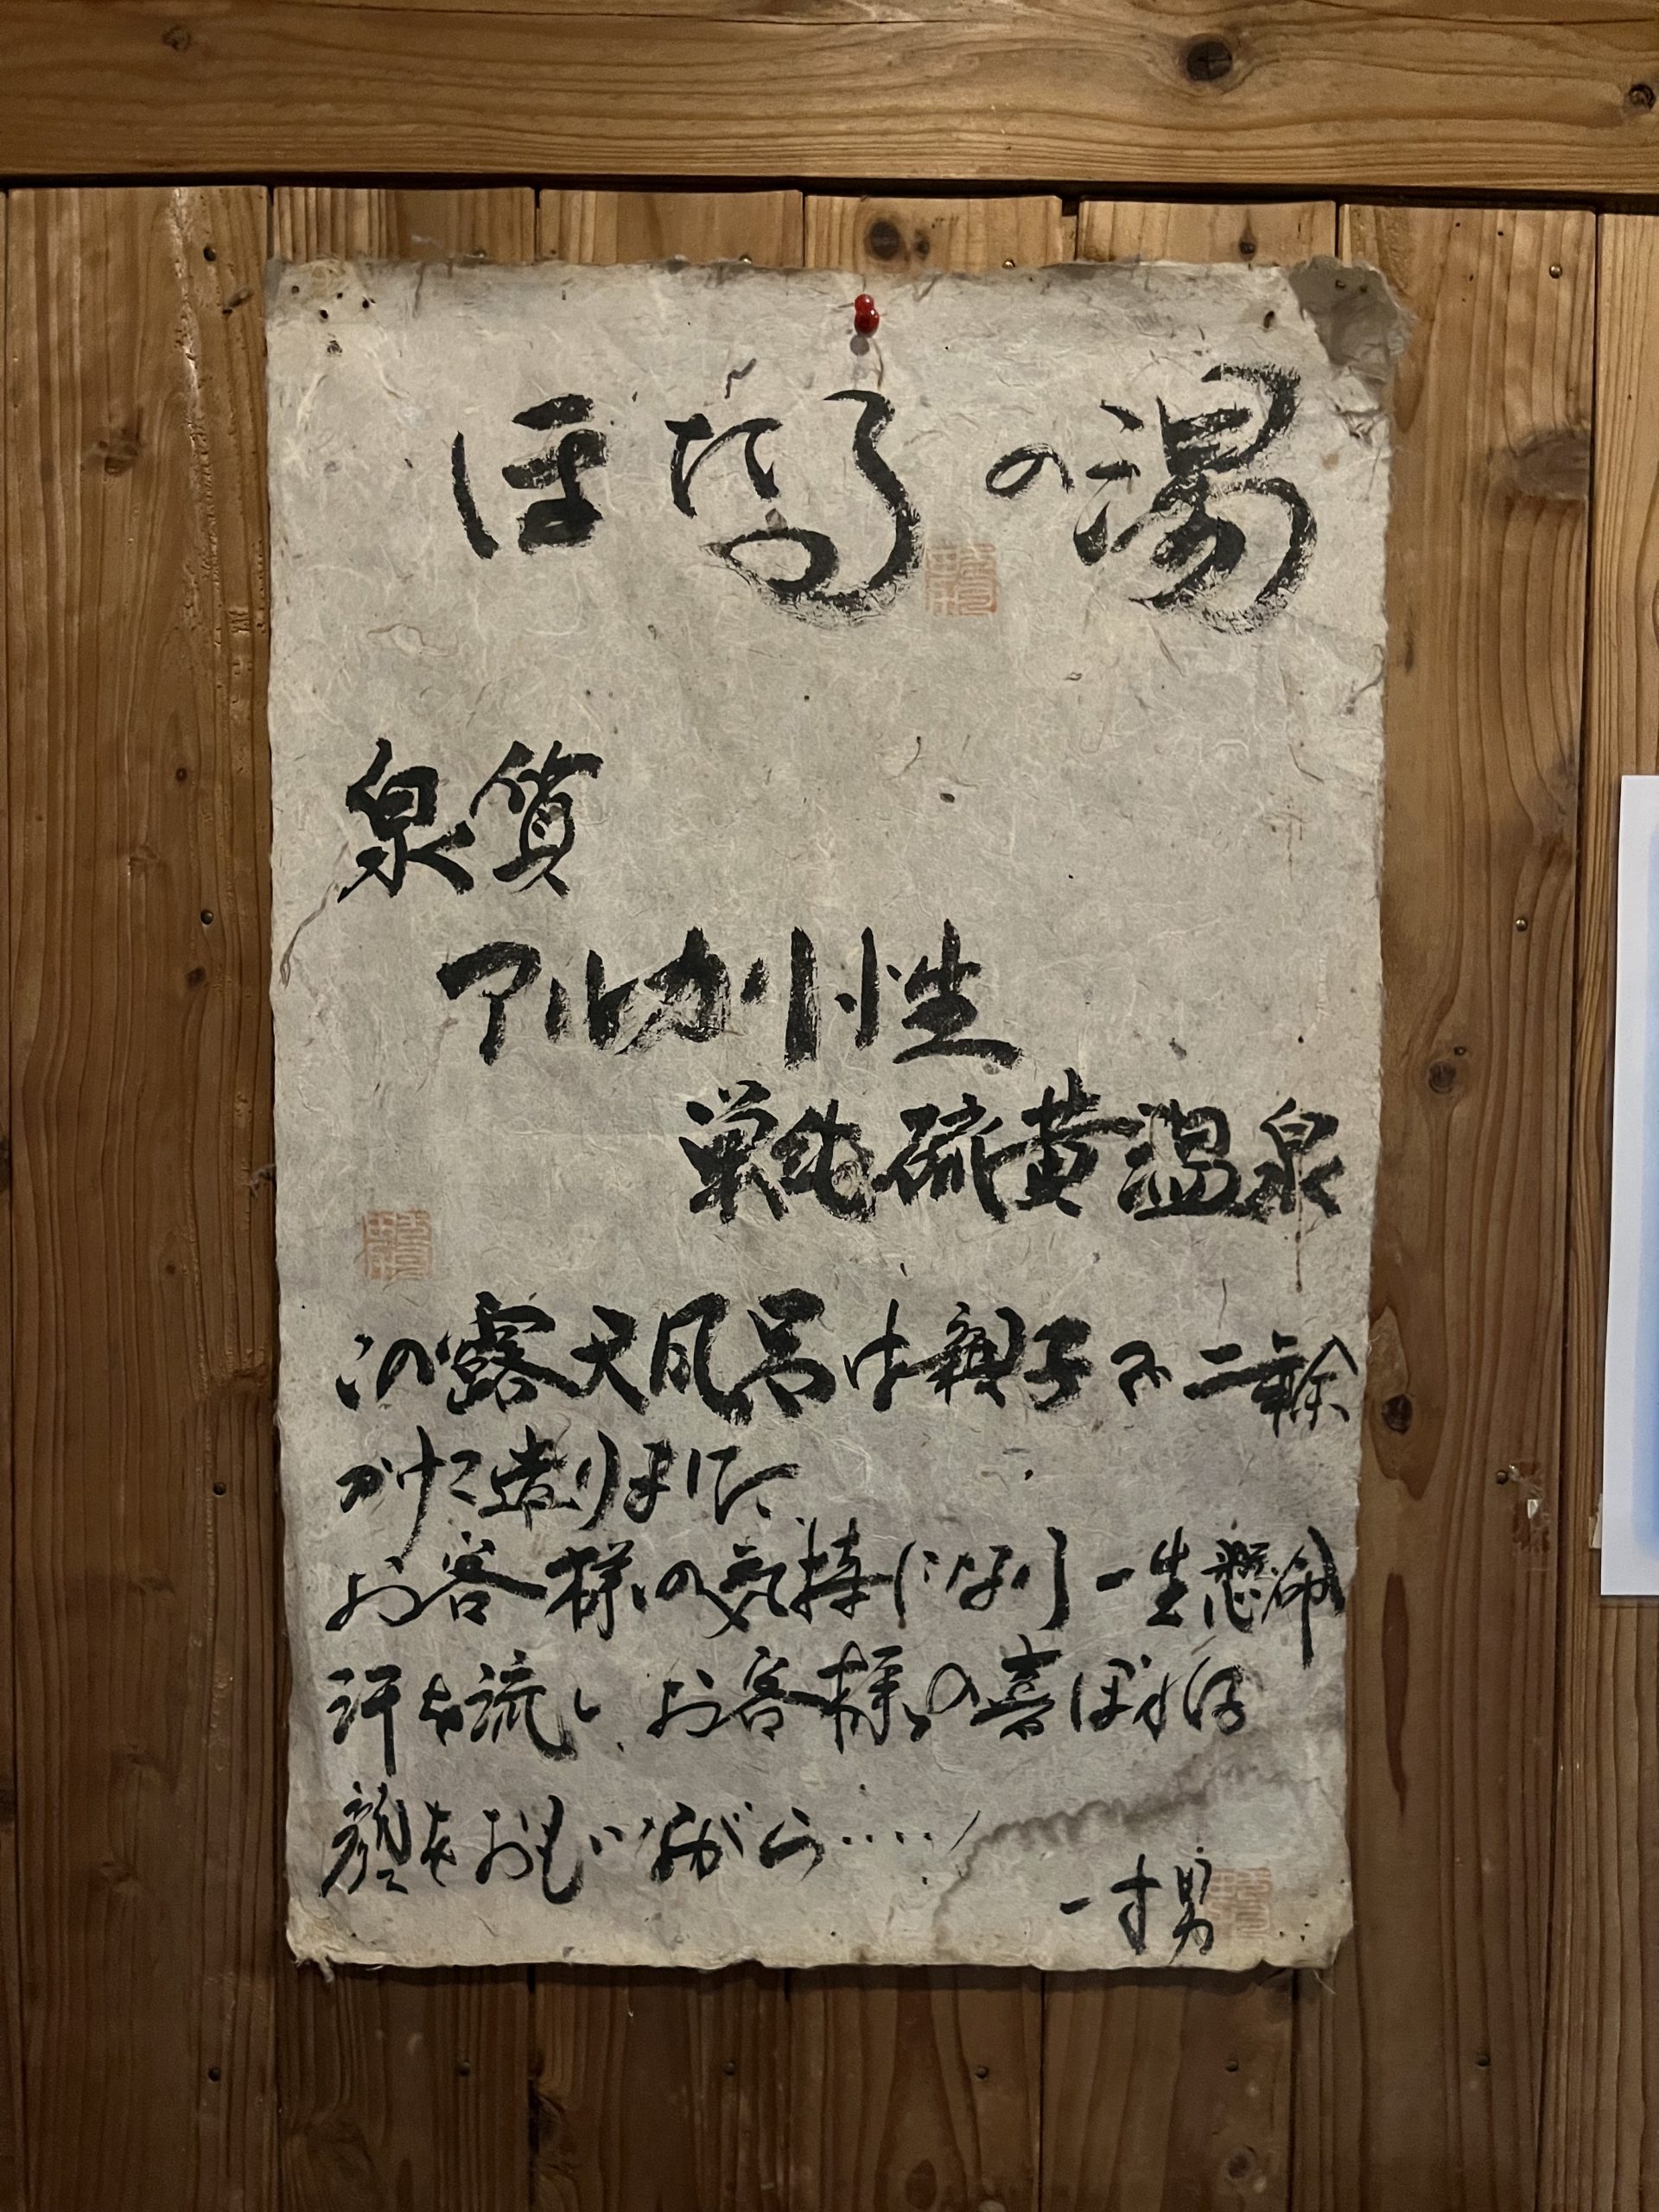 ほたるの湯
泉質
アルカリ性
単純硫黄温泉
この露天風呂は親子で二年余
かけて造りました
お客様の気持になり一生懸命
汗を流し、お客様の喜ぼれる
顔をおもいながら‥‥
一寸男